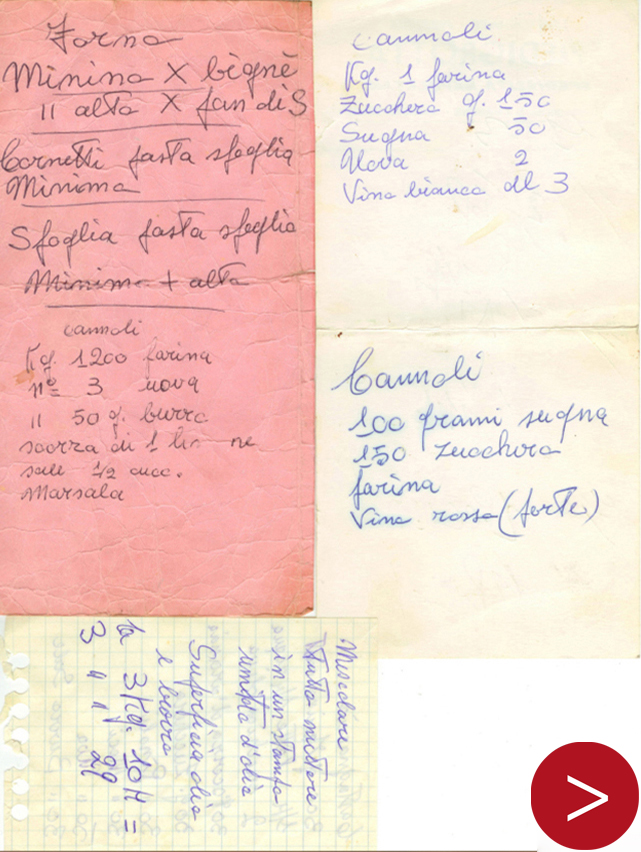 Forno
Minima X bignè
11 alta X pan di S
Cornetti pasta sfoglia
Minima
Sfoglia pasta sfoglia
Minima + alta
cannoli
Kg. 1200 farina
nº 3 uova
11 50 g. burro
scorza di 1 limone
sale 1/2 cucc.
Marsala
Cannoli
Kg. 1 farina
Zucchero g. 150
Sugna 50
Uova 2
Vino bianco dl 3
Cannoli
100 grami sugna
150 zucchero
farina
Vino rosso (forte)
Miscelare
tutto mettere
in un stampo
umto d'olio
Superficia olio
e burro
3 Kg. 10 H =
3 " " 29
>